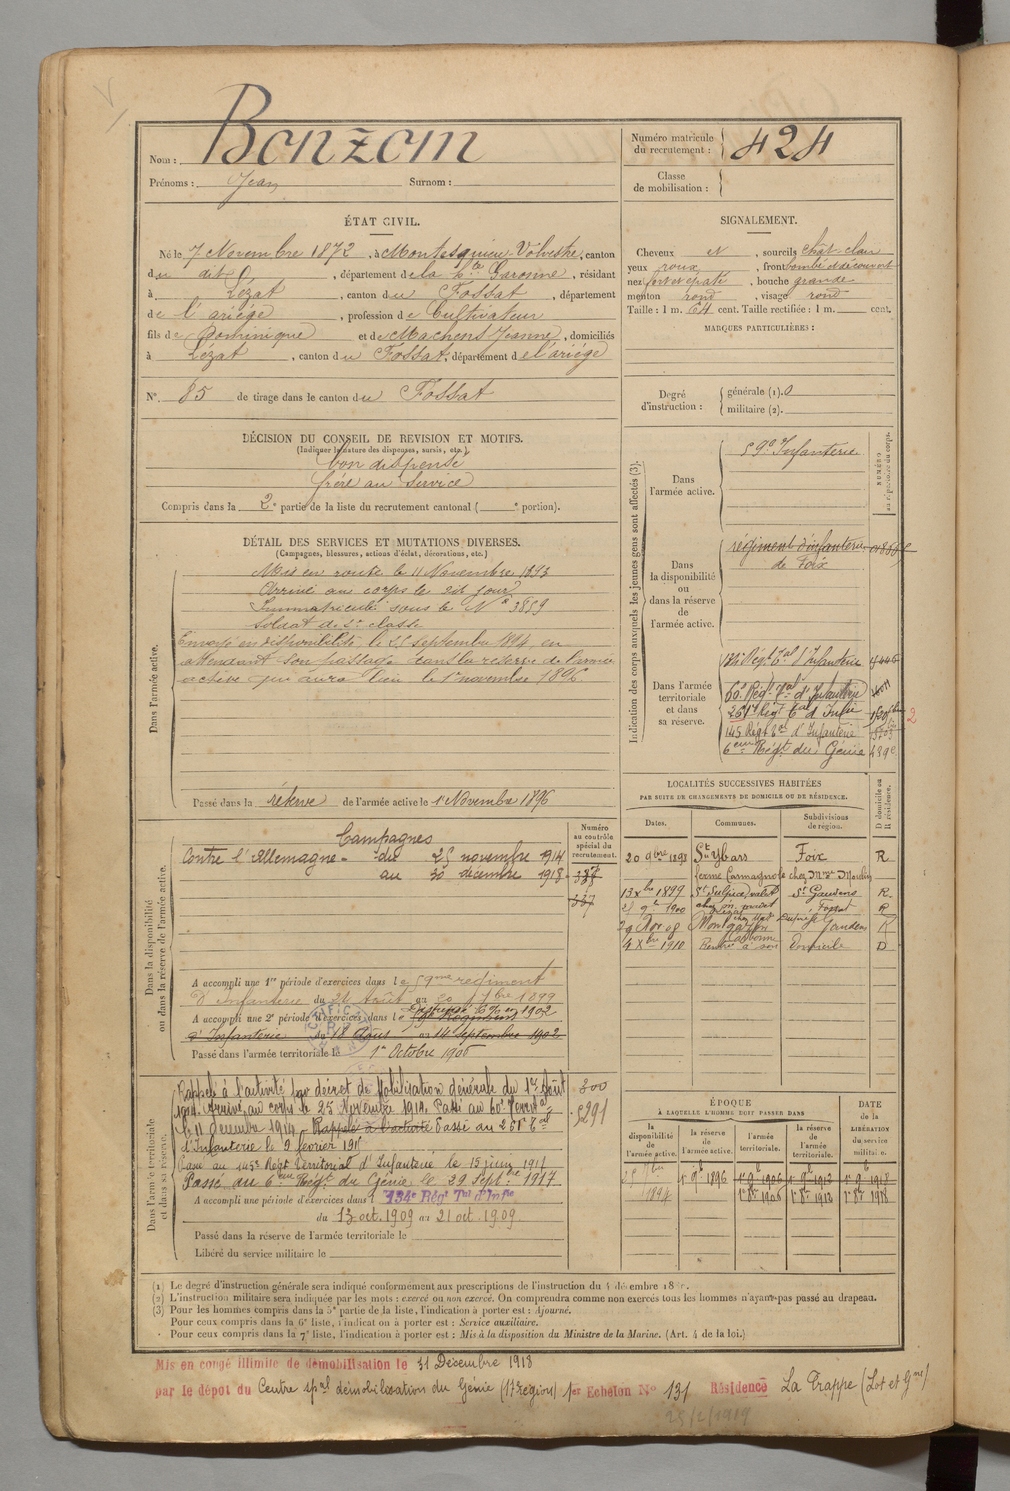 Nom : Bonzom
Prénoms : Jean Surnom :
Numéro matricule du recrutement : 424
Classe de mobilisation :
ÉTAT CIVIL.
Né le 7 Novembre 1872, à Montesquieu Volvestre, canton
du dit, département de la Hte Garonne, résidant
à Lézat, canton du Fossat, département
de l'ariége, profession de Cultivateur
fils de Dominique et de Machens Jeanne, domiciliés
à Lézat, canton du Fossat, département de l'ariége
N° 85 de tirage dans le canton du Fossat
SIGNALEMENT.
Cheveux et, sourcils chât. clair
yeux roux, front bombé et découvert
nez fort et épaté, bouche grande
menton rond, visage rond
Taille : 1 m. 64 cent. Taille rectifiée : 1 m. cent.
MARQUES PARTICULIÈRES :
Degré d'instruction : générale (1). 0
militaire (2).
DÉCISION DU CONSEIL DE REVISION ET MOTIFS.
(Indiquer la nature des dispenses, sursis, etc.)
bon dispensé
frère au service
Compris dans la 2e partie de la liste du recrutement cantonal ( e portion).
DÉTAIL DES SERVICES ET MUTATIONS DIVERSES.
(Campagnes, blessures, actions d'éclat, décorations, etc.)
Dans l'armée active.
Mis en route le 11 Novembre 1893
Arrivé au corps le dit jour
Immatriculé sous le N° 3859
Soldat de 2e classe
Envoyé en disponibilité, le 25 septembre 1894, en
attendant son passage dans la réserve de l'armée
active qui aura lieu le 1er novembre 1896
Passé dans la réserve de l'armée active le 1er Novembre 1896
Indication des corps auxquels les jeunes gens sont affectés (3).
NUMÉRO au répertoire du corps.
Dans l'armée active.
59e Infanterie
Dans la disponibilité ou dans la réserve de l'armée active.
régiment d'infanterie
de Foix
Dans l'armée territoriale et dans sa réserve.
134e Régt Tal d'Infanterie
60e Régt Tal d'Infanterie
261e Régt Tal d'Infie
2
145 Régt Tal d'Infanterie
6eme Régt du Génie
LOCALITÉS SUCCESSIVES HABITÉES
PAR SUITE DE CHANGEMENTS DE DOMICILE OU DE RÉSIDENCE.
Dates. Communes. Subdivisions de région. D domicile ou R résidence.
20 9bre 1898 St Ybars Foix R
13 Xbre 1899 St Sulpice St Gaudens R
1900 Fossat R
29 Nov 08 Montgazin St Gaudens R
4 Xbre 1910 Rentré à son Domicile D
Dans la disponibilité ou dans la réserve de l'armée active.
Numéro au contrôle spécial du recrutement.
Campagnes
Contre l'Allemagne - du 25 novembre 1914
au 30 décembre 1918
337
A accompli une 1re période d'exercices dans le 59me régiment
d'Infanterie du 21 Août au
A accompli une 2e période d'exercices dans le
d'Infanterie du 18 Août au 14 septembre 1902
Passé dans l'armée territoriale le 1er Octobre 1906
Dans l'armée territoriale et dans sa réserve.
Rappelé à l'activité par décret de Mobilisation générale du 1er Août
1914. Arrivé au corps le 25 Novembre 1914. Passé au 60e Territal
le 11 décembre 1914 - Rappelé à l'activité Passé au 261e Tal
d'Infanterie le 9 février 191
Passé au 145e Régt Territorial d'Infanterie le 15 juin 1917
Passé au 6eme Régt du Génie le 29 Septbre 1917
300
5291
A accompli une période d'exercices dans l 134e Régt Tal d'Infie
du 13 oct. 1909 au 21 oct. 1909
Passé dans la réserve de l'armée territoriale le
Libéré du service militaire le
ÉPOQUE
À LAQUELLE L'HOMME DOIT PASSER DANS
DATE de la LIBÉRATION du service militaire.
la disponibilité de l'armée active. la réserve de l'armée active. l'armée territoriale. la réserve de l'armée territoriale.
1894 1er 9bre 1896 1er 9bre 1906 1er 9bre 1912 1er 9bre 1918
1er 8bre 1906 1er 8bre 1912 1er 8bre 1918
(1) Le degré d'instruction générale sera indiqué conformément aux prescriptions de l'instruction du 4 décembre 18
(2) L'instruction militaire sera indiquée par les mots : exercé ou non exercé. On comprendra comme non exercés tous les hommes n'ayant pas passé au drapeau.
(3) Pour les hommes compris dans la 5e partie de la liste, l'indication à porter est : Ajourné.
Pour ceux compris dans la 6e liste, l'indication à porter est : Service auxiliaire.
Pour ceux compris dans la 7e liste, l'indication à porter est : Mis à la disposition du Ministre de la Marine. (Art. 4 de la loi.)
Mis en congé illimité de démobilisation le 31 Décembre 1918
par le dépôt du Centre spal démobilisation du Génie (17e région) 1er Echelon N° 131 Résidence La Trappe (Lot et Gne)
25/2/1919